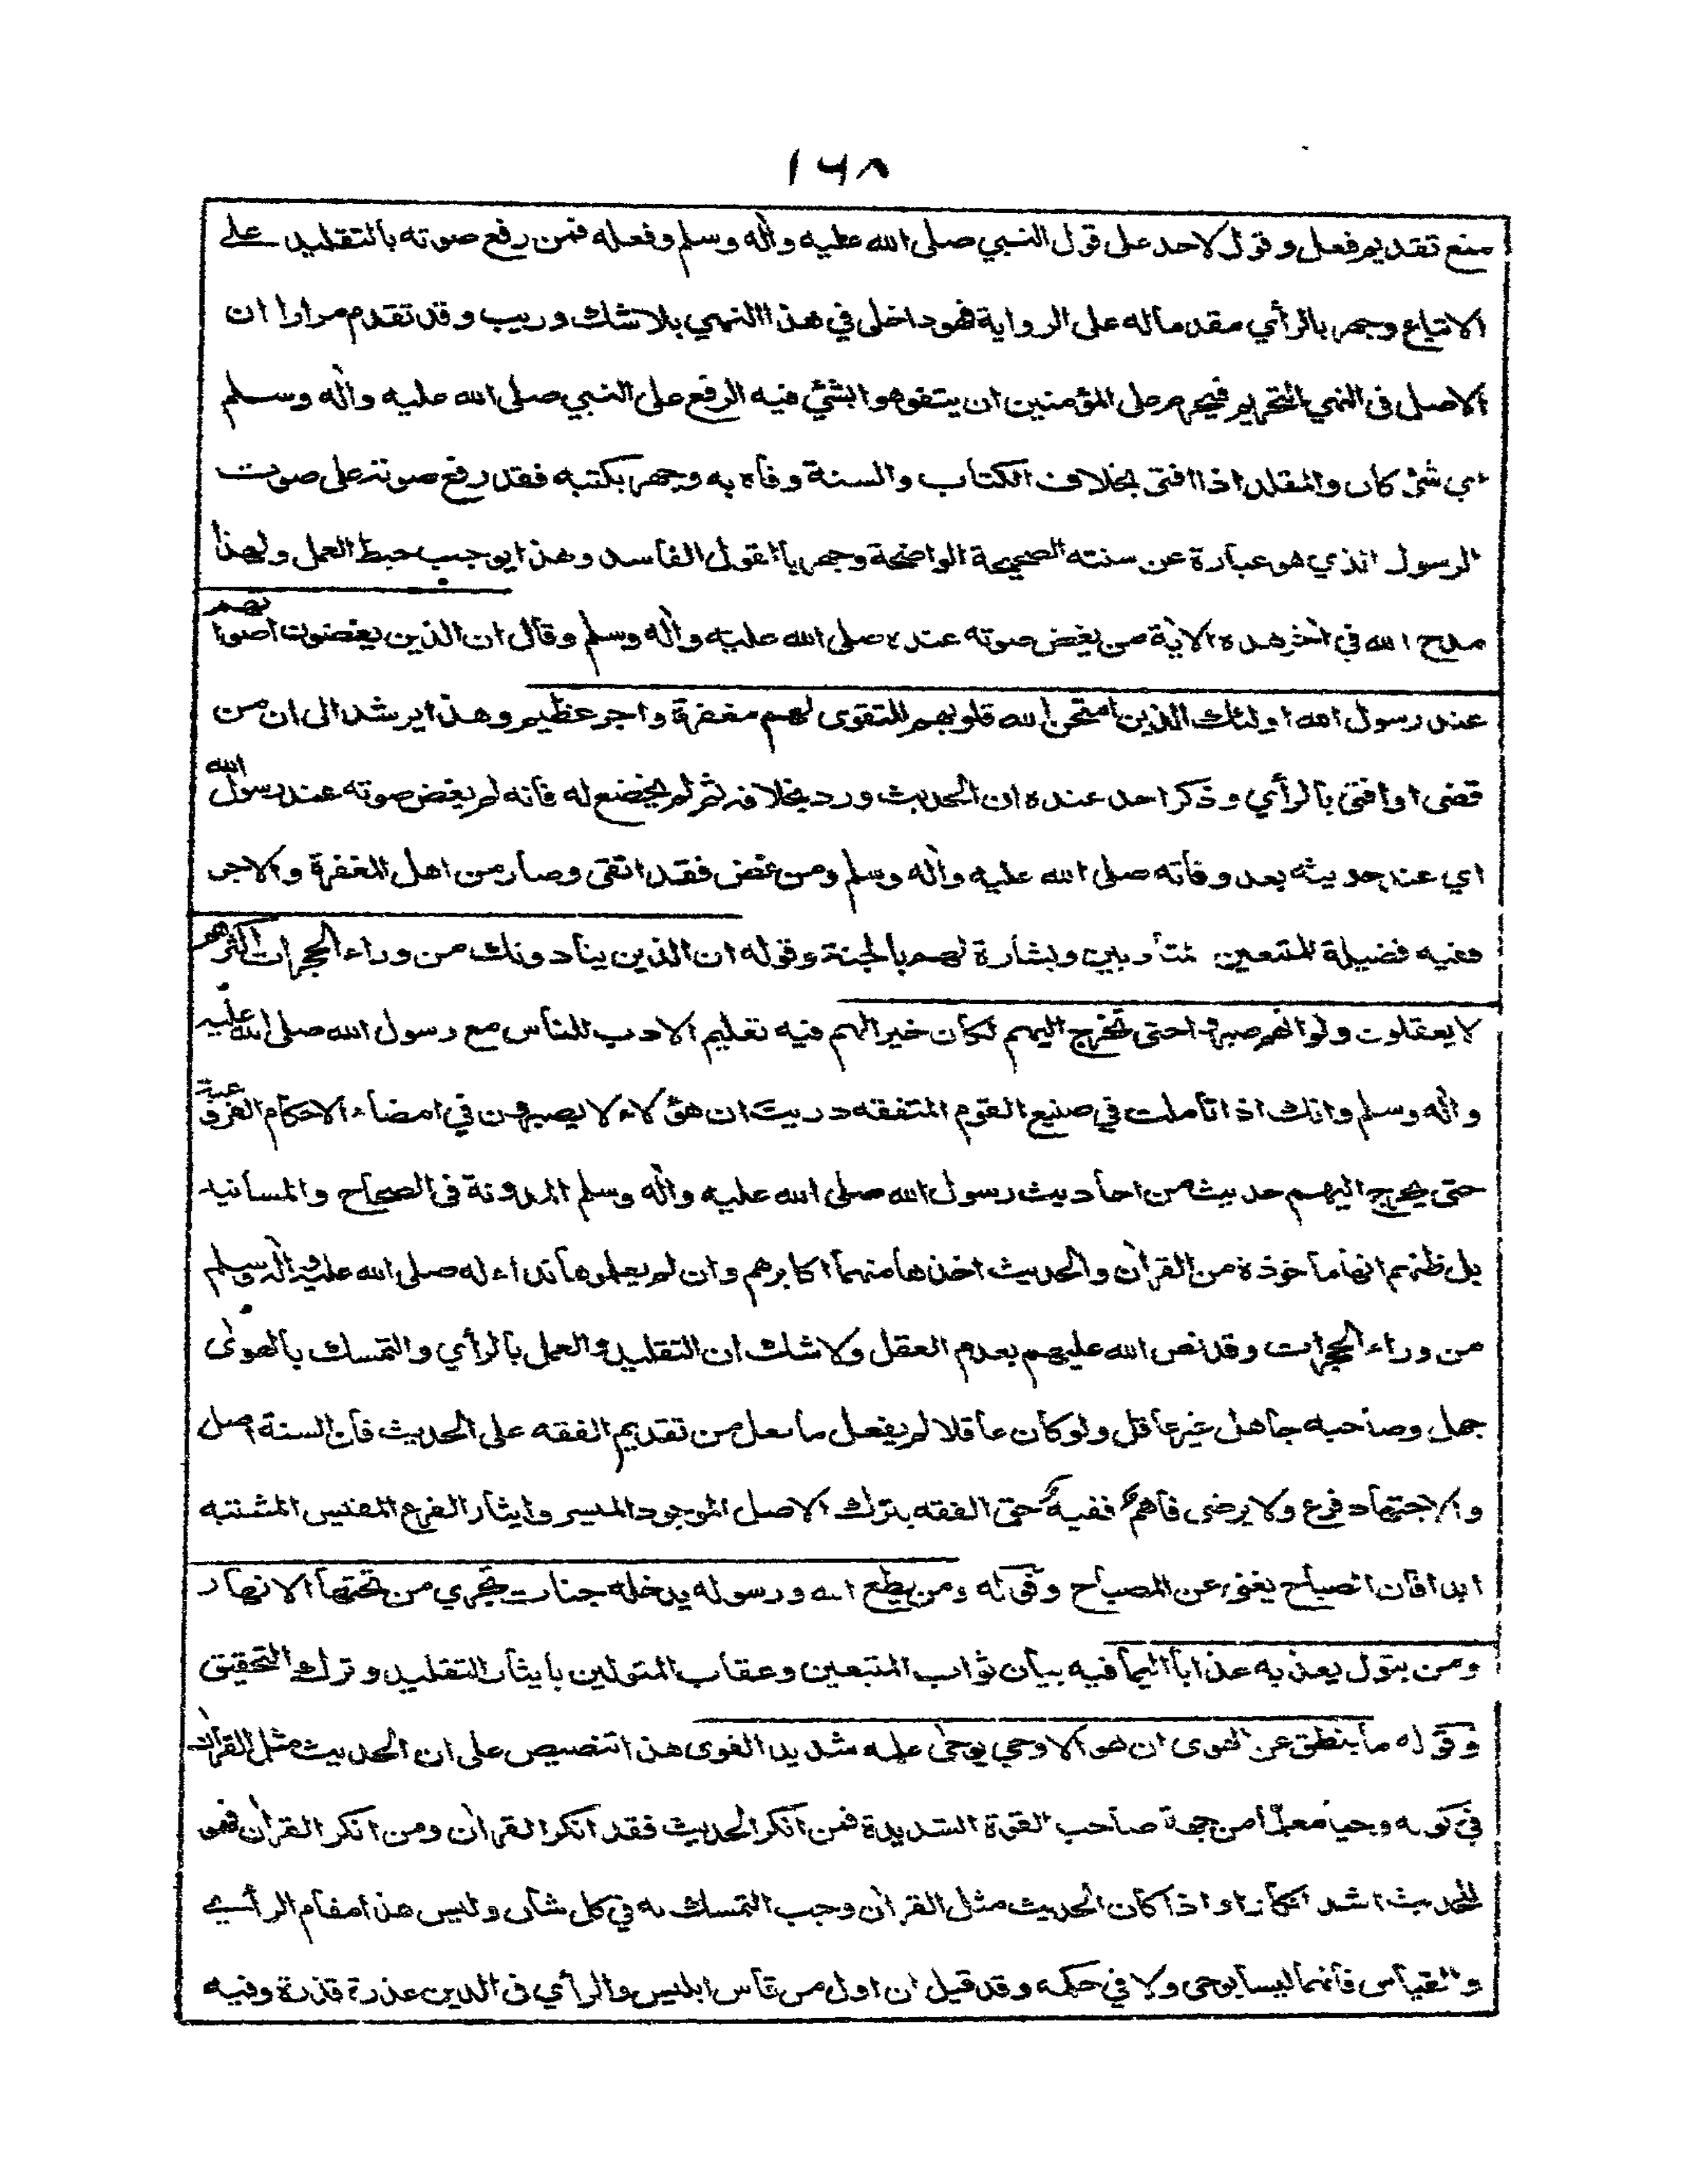 ١٦٨
منع تقديم فعل و قول لاحد على قول النبي صلى الله عليه وآله وسلم وفعله فمن رفع صوته بالتقليد على
الاتباع وجهر بالرأي مقدما له على الرواية فهو داخل في هذا النهي بلا شك و ريب و قد تقدم مرارا ان
الاصل فى النهي التحريم فيحرم على المؤمنين ان يتفوهوا بشئ فيه الرفع على النبي صلى الله عليه وآله وسلم
اي شئ كان والمقلد اذا افتى بخلاف الكتاب والسنة وفاه به وجهر بكتبه فقد رفع صوته على صوت
الرسول الذي هو عبارة عن سنته الصحيحة الواضحة وجهر بالقول الفاسد وهذا يوجب حبط العمل ولهذا
مدح الله في آخر هذه الآية من يغض صوته عنده صلى الله عليه وآله وسلم وقال ان الذين يغضون اصواتهم
عند رسول الله اولئك الذين امتحن الله قلوبهم للتقوى لهم مغفرة واجر عظيم وهذا يرشد الى ان من
قضى او افتى بالرأي و ذكر احد عنده ان الحديث ورد بخلافه ثم لم يخضع له فانه لم يغض صوته عند رسول الله
اي عند حديثه بعد وفاته صلى الله عليه وآله وسلم ومن غض فقد اتقى وصار من اهل المغفرة والاجر
ففيه فضيلة للمتبعين متأدبين وبشارة لهم بالجنة وقوله ان الذين ينادونك من وراء الحجرات اكثرهم
لا يعقلون ولو انهم صبروا حتى تخرج اليهم لكان خيرا لهم فيه تعليم الادب للناس مع رسول الله صلى الله عليه
وآله وسلم وانك اذا تأملت في صنيع القوم المتفقه دريت ان هؤلاء لا يصبرون في امضاء الاحكام الفروعية
حتى يخرج اليهم حديث من احاديث رسول الله صلى الله عليه وآله وسلم المدونة فى الصحاح والمسانيد
بل ظنهم انها مأخوذة من القرآن والحديث اخذها منهما اكابرهم وان لم يعلموها نداء له صلى الله عليه وآله وسلم
من وراء الحجرات وقد نص الله عليهم بعدم العقل ولا شك ان التقليد والعمل بالرأي والتمسك بالهوى
جهل وصاحبه جاهل غير عاقل ولو كان عاقلا لم يفعل ما فعل من تقديم الفقه على الحديث فان السنة اصل
والاجتهاد فرع ولا يرضى فاهم ففيه حق الفقه بترك الاصل الموجود الميسر وايثار الفرع المقيس المشتبه
ابدا فان الصباح يغنى عن المصباح وقوله ومن يطع الله ورسوله يدخله جنات تجري من تحتها الانهار
ومن يتول يعذبه عذابا اليما فيه بيان ثواب المتبعين وعقاب المتولين بايثار التقليد و ترك التحقيق
وقوله ما ينطق عن الهوى ان هو الا وحي يوحى علمه شديد القوى هذا تنصيص على ان الحديث مثل القرآن
في كونه وحيا معلما من جهة صاحب القوة الشديدة فمن انكر الحديث فقد انكر القرآن ومن انكر القرآن فهو
للحديث اشد انكارا و اذا كان الحديث مثل القرآن وجب التمسك به في كل شأن وليس هذا مقام الرأي
والقياس فانهما ليسا بوحى ولا في حكمه وقد قيل ان اول من قاس ابليس والرأي فى الدين عذرة قذرة وفيه